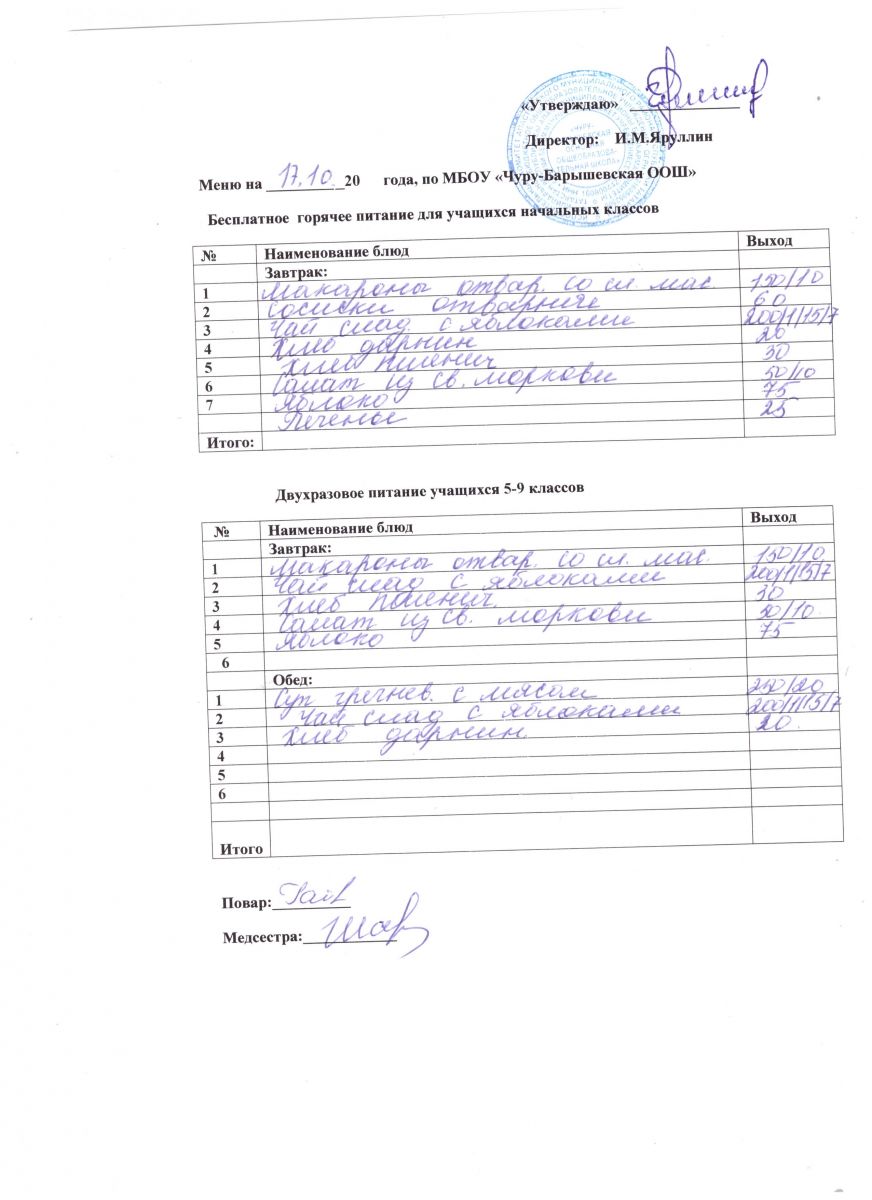 «Утверждаю»
Директор: И.М.Яруллин
Меню на 17.10. 20 года, по МБОУ «Чуру-Барышевская ООШ»
Бесплатное горячее питание для учащихся начальных классов
№ Наименование блюд Выход
Завтрак:
1 Макароны отвар. со сл. мас. 150/10
2 Сосиски отварные 60
3 Чай слад. с яблоками 200/1/15/7
4 Хлеб дарниц 20
5 Хлеб пшенич 30
6 Салат из св. моркови 50/10
7 Яблоко 75
Печенье 25
Итого:
Двухразовое питание учащихся 5-9 классов
№ Наименование блюд Выход
Завтрак:
1 Макароны отвар. со сл. мас. 150/10
2 Чай слад с яблоками 200/1/15/7
3 Хлеб пшенич. 30
4 Салат из св. моркови 50/10
5 Яблоко 75
6
Обед:
1 Суп гречнев. с мясом 250/20
2 Чай слад с яблоками 200/1/15/7
3 Хлеб дарниц. 20.
4
5
6
Итого
Повар:
Медсестра: